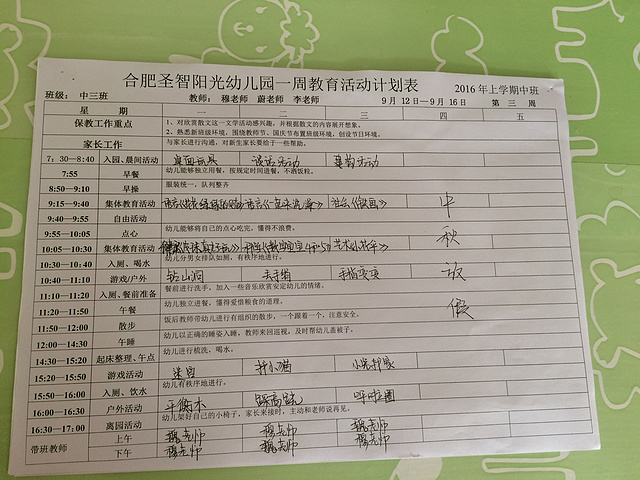 合肥圣智阳光幼儿园一周教育活动计划表
班级： 中三班 教师： 穆老师 蔚老师 李老师 9 月 12日—9 月 16日 第 三 周 2016 年上学期中班
星 期 一 二 三 四 五
保教工作重点 1、对欣赏散文这一文学活动感兴趣，并根据散文的内容展开想象。
2、熟悉新班级环境，围绕教师节、国庆节布置班级环境，创设节日环境。
家长工作 与家长进行沟通，对新生家长要给于一些帮助。
7：30—8:40 入园、晨间活动 桌面玩具 谈话活动 晨间活动
7:55 早餐 幼儿能够独立用餐，按规定时间进餐，不洒饭粒。
8:50—9:10 早操 服装统一，队列整齐
9:15—9:40 集体教育活动 中
9:40—9:55 自由活动
9:55—10:05 点心 幼儿能够将自己的点心吃完，懂得不浪费。 秋
10:05—10:30 集体教育活动
10:30—10:40 入厕、喝水 幼儿分男女排队如厕，有秩序地进行。 放
10:40—11:10 游戏/户外 钻山洞 丢手绢 手指变变
11:10—11:20 入厕、餐前准备 餐前进行洗手，加入一些音乐欣赏安定幼儿的情绪。
11:20—11:50 午餐 幼儿独立进餐，懂得爱惜粮食的道理。 假
11:50—12:00 散步 饭后教师带幼儿进行有组织的散步，一个跟着一个，注意安全。
12:00—14:30 午睡 幼儿以正确的睡姿入睡，教师来回巡视，及时帮幼儿盖被子。
14:30—15:20 起床整理、午点 幼儿进行梳洗，喝水。
15:20—15:50 游戏活动 迷宫 小猫
15:50—16:00 入厕、饮水 幼儿有秩序地进行。
16:00—16:30 户外活动 平衡木 踩高跷 呼啦圈
16:30—17:00 离园活动 幼儿架好自己的小椅子，家长来接时，主动和老师说再见。
带班教师 上午 魏老师 穆老师 魏老师
下午 穆老师 魏老师 穆老师